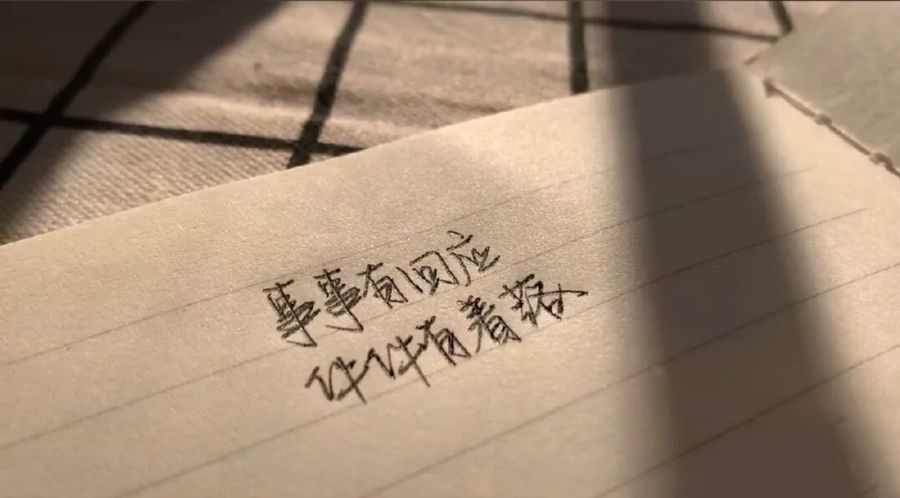 事事有回应
件件有着落